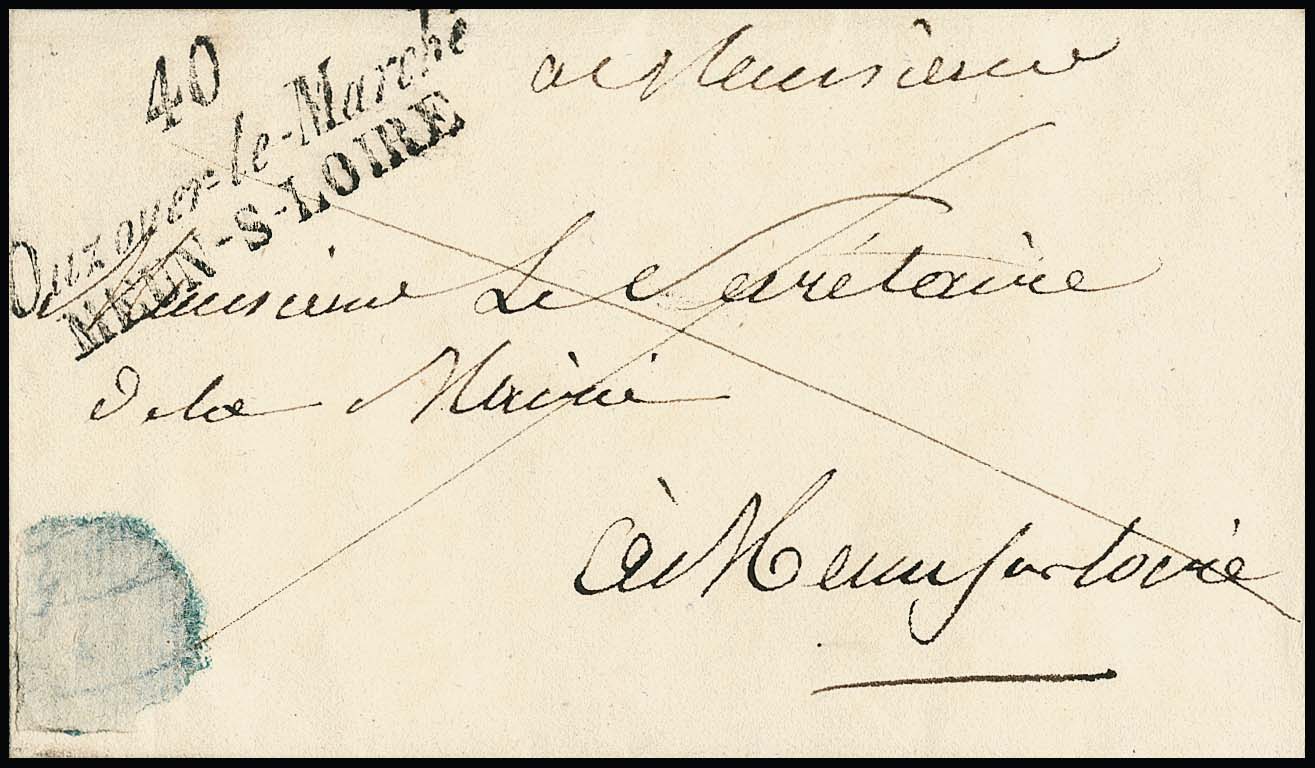 40
Ouzouer-le-Marché
MEUN-S-LOIRE
a Monsieur
a Monsieur Le Secrétaire
de la Mairie
à Meun sur loire